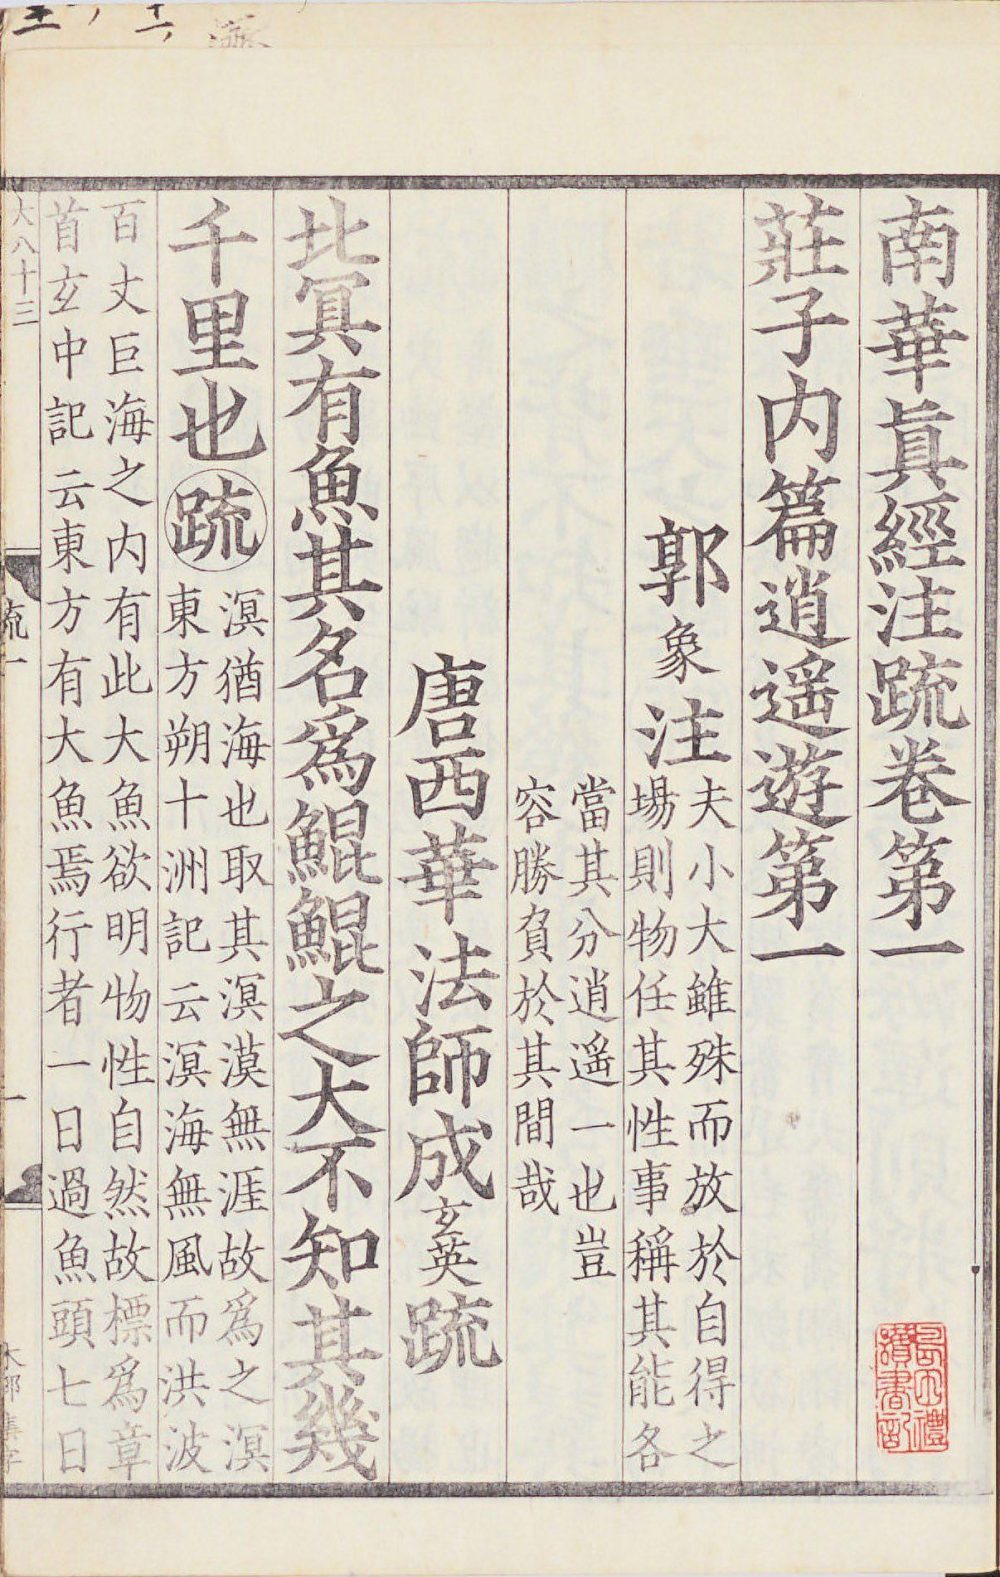 南華眞經注疏卷第一
莊子内篇逍遙遊第一
郭象注
夫小大雖殊而放於自得之
場則物任其性事稱其能各
當其分逍遙一也豈
容勝負於其間哉
唐西華法師成玄英疏
北冥有魚其名爲鯤鯤之大不知其幾
千里也疏
溟猶海也取其溟漠無涯故爲之溟
東方朔十洲記云溟海無風而洪波
百丈巨海之内有此大魚欲明物性自然故標爲章
首玄中記云東方有大魚焉行者一日過魚頭七日
大八十三
疏一
一